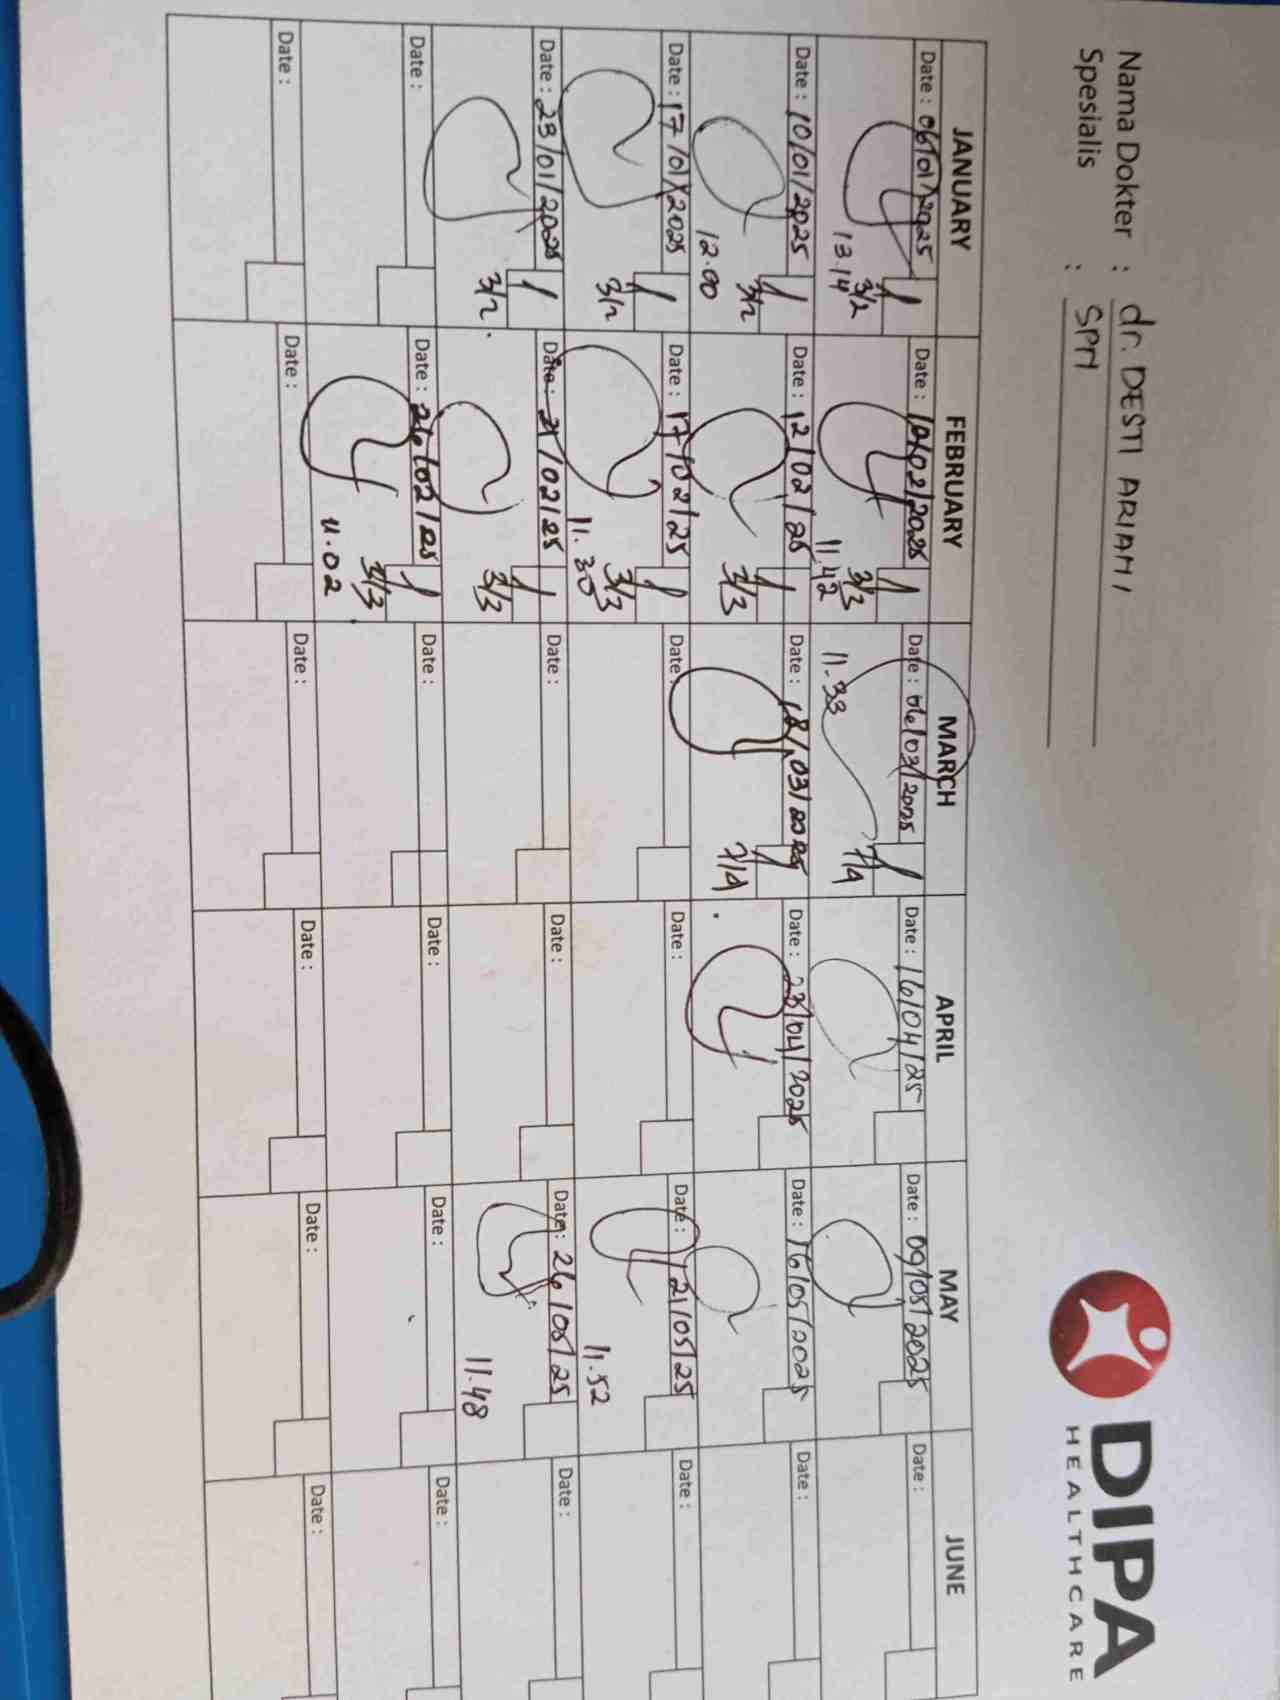 Nama Dokter : dr. DESTI ARIANI
Spesialis : SPM
DIPA
HEALTHCARE
JANUARY FEBRUARY MARCH APRIL MAY JUNE
Date : 06/01/2025 Date : 10/02/2025 Date : 06/03/2025 Date : 16/04/25 Date : 09/05/2025 Date :
13.14 3/2 11.42 3/3 11.33 7/4
Date : 10/01/2025 Date : 12/02/25 Date : 18/03/2025 Date : 23/04/2025 Date : 16/05/2025 Date :
12.00 3/2 3/3 7/4
Date : 17/01/2025 Date : 17/02/25 Date : Date : Date : 21/05/25 Date :
3/2 11.30 3/3 11.52
Date : 23/01/2025 Date : 21/02/25 Date : Date : Date : 26/05/25 Date :
3/2 3/3 11.48
Date : Date : 26/02/25 Date : Date : Date : Date :
11.02 3/3
Date : Date : Date : Date : Date : Date :